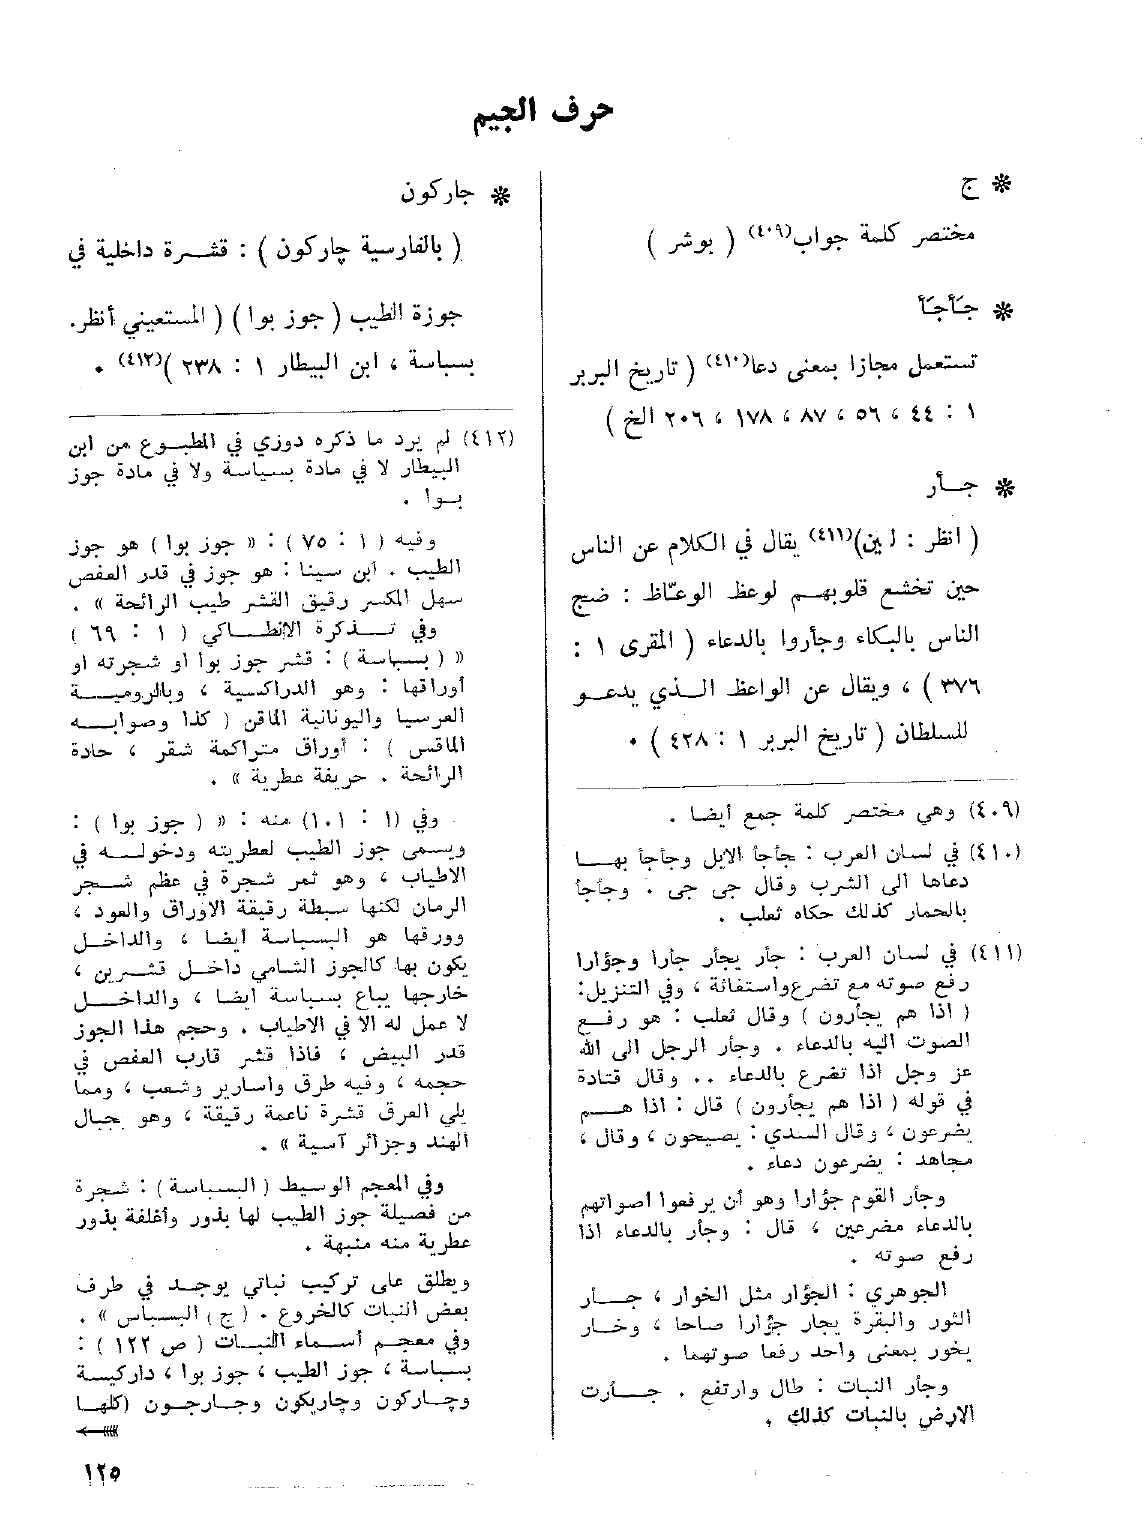 حرف الجيم
❋ ج
مختصر كلمة جواب(٤٠٩) ( بوشر )
❋ جَأجَأ
تستعمل مجازا بمعنى دعا(٤١٠) ( تاريخ البربر
١ : ٤٤ ، ٥٦ ، ٨٧ ، ١٧٨ ، ٢٠٦ الخ )
❋ جــأر
( انظر : لين)(٤١١) يقال في الكلام عن الناس
حين تخشع قلوبهــم لوعظ الوعّاظ : ضج
الناس بالبكاء وجأروا بالدعاء ( المقرى ١ :
٣٧٦ ) ، ويقال عن الواعظ الــذي يدعــو
للسلطان ( تاريخ البربر ١ : ٤٢٨ ) ٠
(٤٠٩) وهي مختصر كلمة جمع أيضا .
(٤١٠) في لسان العرب : جأجأ الابل وجأجأ بهــا
دعاها الى الشرب وقال جى جى . وجأجأ
بالحمار كذلك حكاه ثعلب .
(٤١١) في لسان العرب : جأر يجأر جارا وجؤارا
رفع صوته مع تضرع واستغاثة ، وفي التنزيل:
( اذا هم يجأرون ) وقال ثعلب : هو رفــع
الصوت اليه بالدعاء . وجأر الرجل الى الله
عز وجل اذا تضرع بالدعاء .. وقال قتادة
في قوله ( اذا هم يجأرون ) قال : اذا هــم
يضرعون ، وقال السدي : يصيحون ، وقال ،
مجاهد : يضرعون دعاء .
وجأر القوم جؤارا وهو أن يرفعوا اصواتهم
بالدعاء مضرعين ، قال : وجأر بالدعاء اذا
رفع صوته .
الجوهري : الجؤار مثل الخوار ، جــأر
الثور والبقرة يجأر جؤارا صاحا ، وخــار
يخور بمعنى واحد رفعا صوتهما .
وجأر النبات : طال وارتفع . جــأرت
الارض بالنبات كذلك .
❋ جاركون
( بالفارسية چاركون ) : قشــرة داخلية في
جوزة الطيب ( جوز بوا ) ( المستعيني أنظر.
بسباسة ، ابن البيطار ١ : ٢٣٨ )(٤١٢) ٠
(٤١٢) لم يرد ما ذكره دوزي في المطبــوع من ابن
البيطار لا في مادة بسباسة ولا في مادة جوز
بــوا .
وفيه ( ١ : ٧٥ ) : « جوز بوا ) هو جوز
الطيب . ابن سينا : هو جوز في قدر العفص
سهل المكسر رقيق القشر طيب الرائحة » .
وفي تــذكرة الانطــاكي ( ١ : ٦٩ )
« ( بسباسة ) : قشر جوز بوا او شجرته او
أوراقها : وهو الدراكسية ، وبالروميــة
العرسيا واليونانية الماقن ( كذا وصوابــه
الماقس ) : أوراق متراكمة شقر ، حادة
الرائحة . حريفة عطرية » .
وفي (١ : ١٠١) منه : « ( جوز بوا ) :
ويسمى جوز الطيب لعطريته ودخولــه في
الاطياب ، وهو ثمر شجرة في عظم شــجر
الرمان لكنها سبطة رقيقة الاوراق والعود ،
وورقها هو البسباسة أيضا ، والداخــل
يكون بها كالجوز الشامي داخــل قشــرين ،
خارجها يباع بسباسة أيضا ، والداخــل
لا عمل له الا في الاطياب . وحجم هذا الجوز
قدر البيض ، فاذا قشر قارب العفص في
حجمه ، وفيه طرق واسارير وشعب ، ومما
يلي العرق قشرة ناعمة رقيقة ، وهو بجبال
الهند وجزائر آسية » .
وفي المعجم الوسيط ( البسباسة ) : شجرة
من فصيلة جوز الطيب لها بذور وأغلفة بذور
عطرية منه منبهة .
ويطلق على تركيب نباتي يوجــد في طرف
بعض النبات كالخروع . ( ج ) البسباس » .
وفي معجــم أسمــاء النبــات ( ص ١٢٢ ) :
بسباسة ، جوز الطيب ، جوز بوا ، داركيسة
وچــاركون وچاريكون وجــارجــون (كلهــا
١٢٥